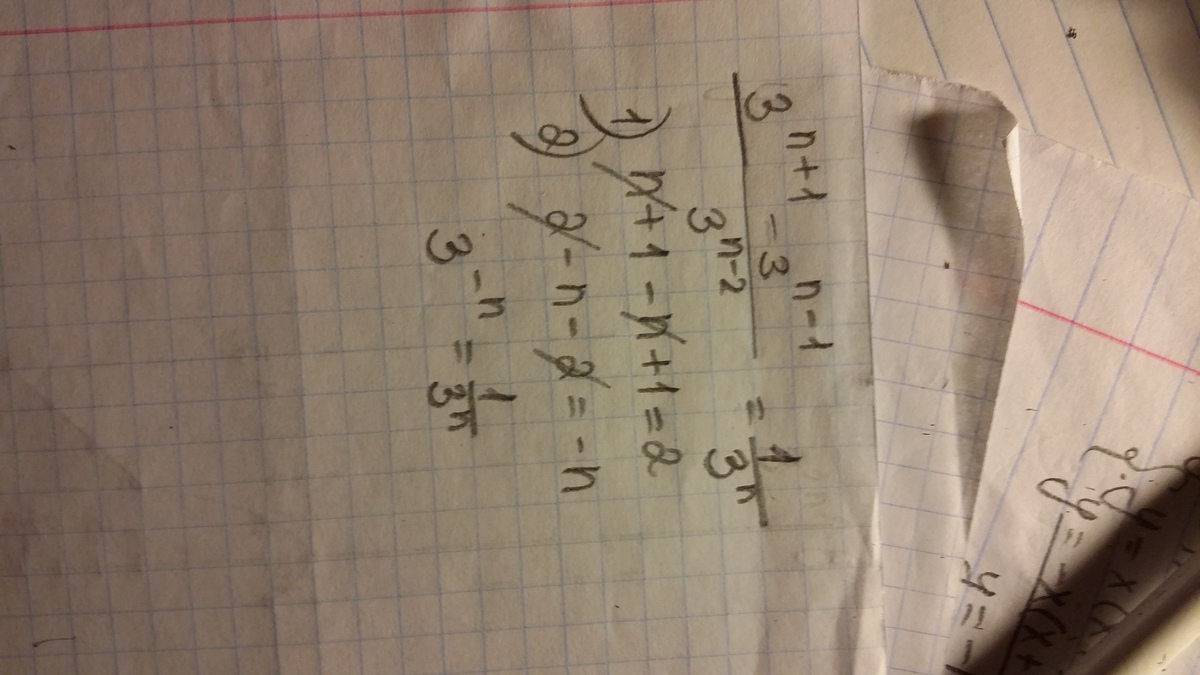 3^{n+1} - 3^{n-1}
3^{n-2}
= 1/3^n
1) n+1-n+1=2
2) 2-n-2=-n
3^{-n} = 1/3^n
y=-x(x+
y=-